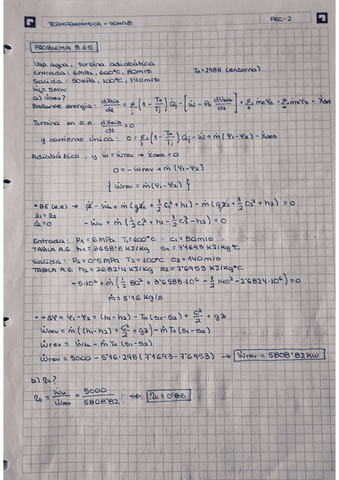 TERMODINÁMICA - TEMA 8 PEC-2
PROBLEMA 8.65
Vap agua, turbina adiabática
Entrada: 6MPa, 600ºC, 80m/s T0=298K (entorno)
Salida: 50kPa, 100ºC, 140m/s
Ẇu = 5MW
a) Ẇrev?
Balance energía: dXsis/dt = Σj (1 - T0/Tj) Q̇j - [Ẇ - P0 dVsis/dt] + Σe ṁeΨe - Σs ṁsΨs - Ẋdes
Turbina en e.e. dXsis/dt = 0
y corriente única: 0 = Σj (1 - T0/Tj) Q̇j - Ẇ + ṁ(Ψ1 - Ψ2) - Ẋdes
Adiabático, y Ẇ = Ẇrev → Ẋdes = 0
0 = - Ẇrev + ṁ(Ψ1 - Ψ2)
{ Ẇrev = ṁ(Ψ1 - Ψ2) }
• BE (e.e) → Q̇ - Ẇu + ṁ(gz1 + 1/2 c1² + h1) - ṁ(gz2 + 1/2 c2² + h2) = 0
z1 = z2
Q̇ = 0 - Ẇu + ṁ(1/2 c1² + h1 - 1/2 c2² - h2) = 0
Entrada: P1 = 6MPa T1 = 600ºC - C1 = 80m/s
TABLA A.6 h1 = 3658'8 KJ/Kg S1 = 7'1693 KJ/KgºC
Salida: P2 = 0'5MPa T2 = 100ºC C2 = 140m/s
TABLA A.6 h2 = 2682'4 KJ/Kg S2 = 7'6953 KJ/KgºC
- 5·10⁶ + ṁ(1/2 80² + 3'6588·10⁶ - 1/2 140² - 2'6824·10⁶) = 0
ṁ = 5'16 Kg/s
• - ΔΨ = Ψ1 - Ψ2 = (h1 - h2) - T0(S1 - S2) + C²/2 + gz
Ẇrev = ṁ((h1 - h2) + C²/2 + gz) - ṁT0(S1 - S2)
Ẇrev = Ẇu - ṁT0(S1 - S2)
Ẇrev = 5000 - 5'16·298(7'1693 - 7'6953) → Ẇrev = 5808'82 KW
b) ηII?
ηII = Ẇu/Ẇrev = 5000/5808'82 ⇒ ηII = 0'86